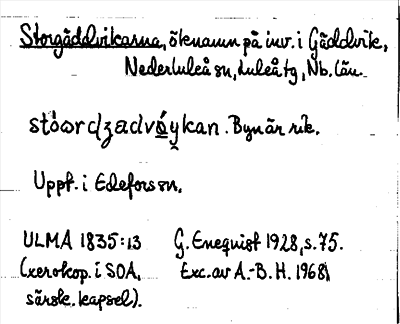 Storgäddvikarna, öknamn på inv. i Gäddvik,
Nederluleå sn, Luleå tg, Nb. län.
Byn är rik.
Uppt. i Edefors sn.
ULMA 1835:13 G. Enequist 1928, s. 75.
(xerokop. i SOA, Exc. av A.-B. H. 1968)
särsk. kapsel).